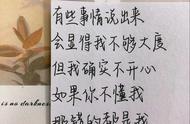 有些事情说出来
会显得我不够大度
但我确实不开心
如果你不懂我
那错的都是我
is no darkness